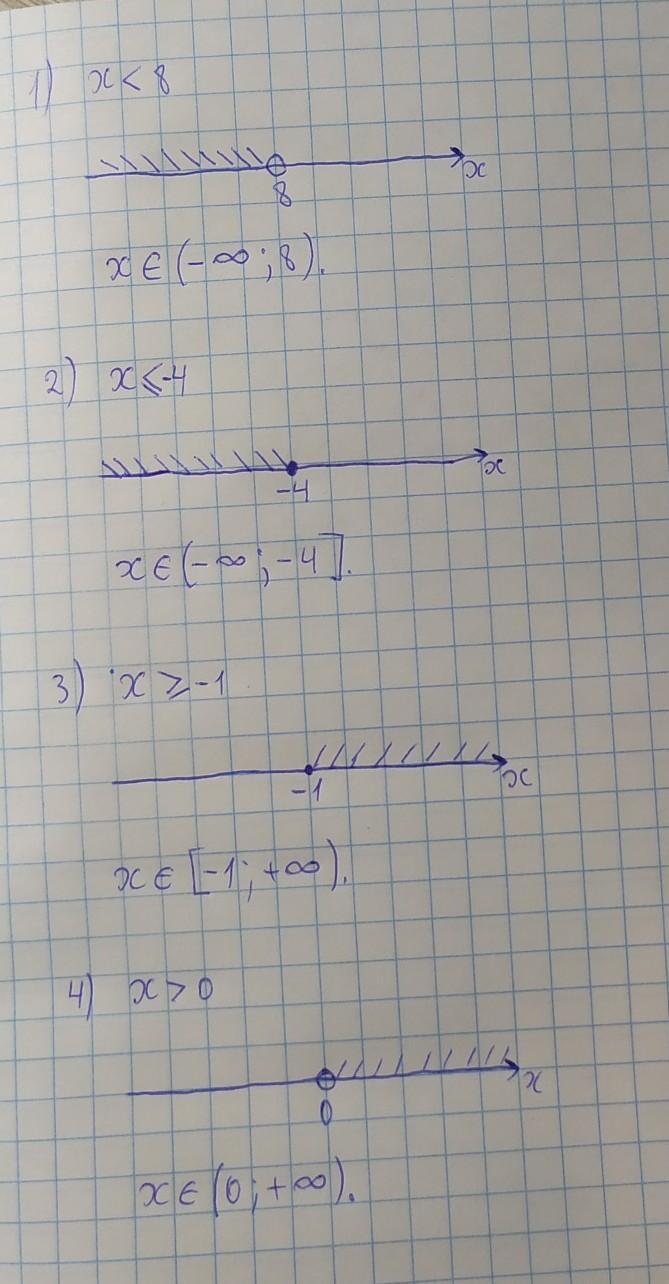 1) x < 8
x
8
x ∈ (-∞; 8).
2) x ≤ -4
x
-4
x ∈ (-∞; -4].
3) x ≥ -1
x
-1
x ∈ [-1; +∞).
4) x > 0
x
0
x ∈ (0; +∞).